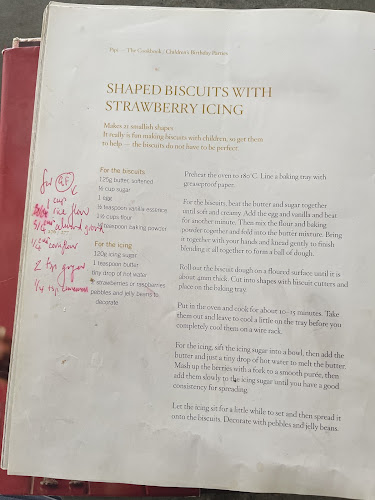 Pipi — The Cookbook / Children's Birthday Parties
SHAPED BISCUITS WITH
STRAWBERRY ICING
Makes 25 smallish shapes
It really is fun making biscuits with children, so get them
to help — the biscuits do not have to be perfect
For the biscuits
125g butter, softened
½ cup sugar
1 egg
½ teaspoon vanilla essence
1½ cups flour
1 teaspoon baking powder
For the icing
120g icing sugar
1 teaspoon butter
tiny drop of hot water
strawberries or raspberries
pebbles and jelly beans to
decorate
for GF
1 cup
rice flour
almond ground
¼ cup cornflour
2 tsp ginger
¼ tsp
Preheat the oven to 180°C. Line a baking tray with
greaseproof paper.
For the biscuits, beat the butter and sugar together
until soft and creamy. Add the egg and vanilla and beat
for another minute. Then mix the flour and baking
powder together and fold into the butter mixture. Bring
it together with your hands and knead gently to finish
blending it all together to form a ball of dough.
Roll out the biscuit dough on a floured surface until it is
about 4mm thick. Cut into shapes with biscuit cutters and
place on the baking tray.
Put in the oven and cook for about 10–15 minutes. Take
them out and leave to cool a little on the tray before you
completely cool them on a wire rack.
For the icing, sift the icing sugar into a bowl, then add the
butter and just a tiny drop of hot water to melt the butter.
Mash up the berries with a fork to a smooth purée, then
add them slowly to the icing sugar until you have a good
consistency for spreading.
Let the icing sit for a little while to set and then spread it
onto the biscuits. Decorate with pebbles and jelly beans.